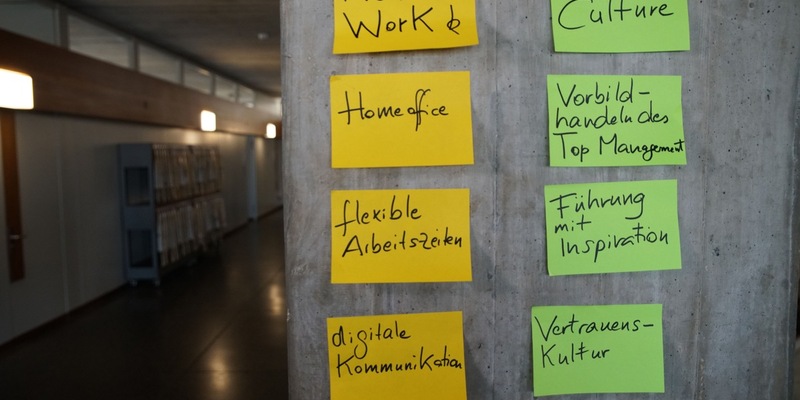 Work &
Homeoffice
flexible
Arbeitszeiten
digitale
Kommunikation
Culture
Vorbild-
handeln des
Top Mangement
Führung
mit
Inspiration
Vertrauens-
Kultur